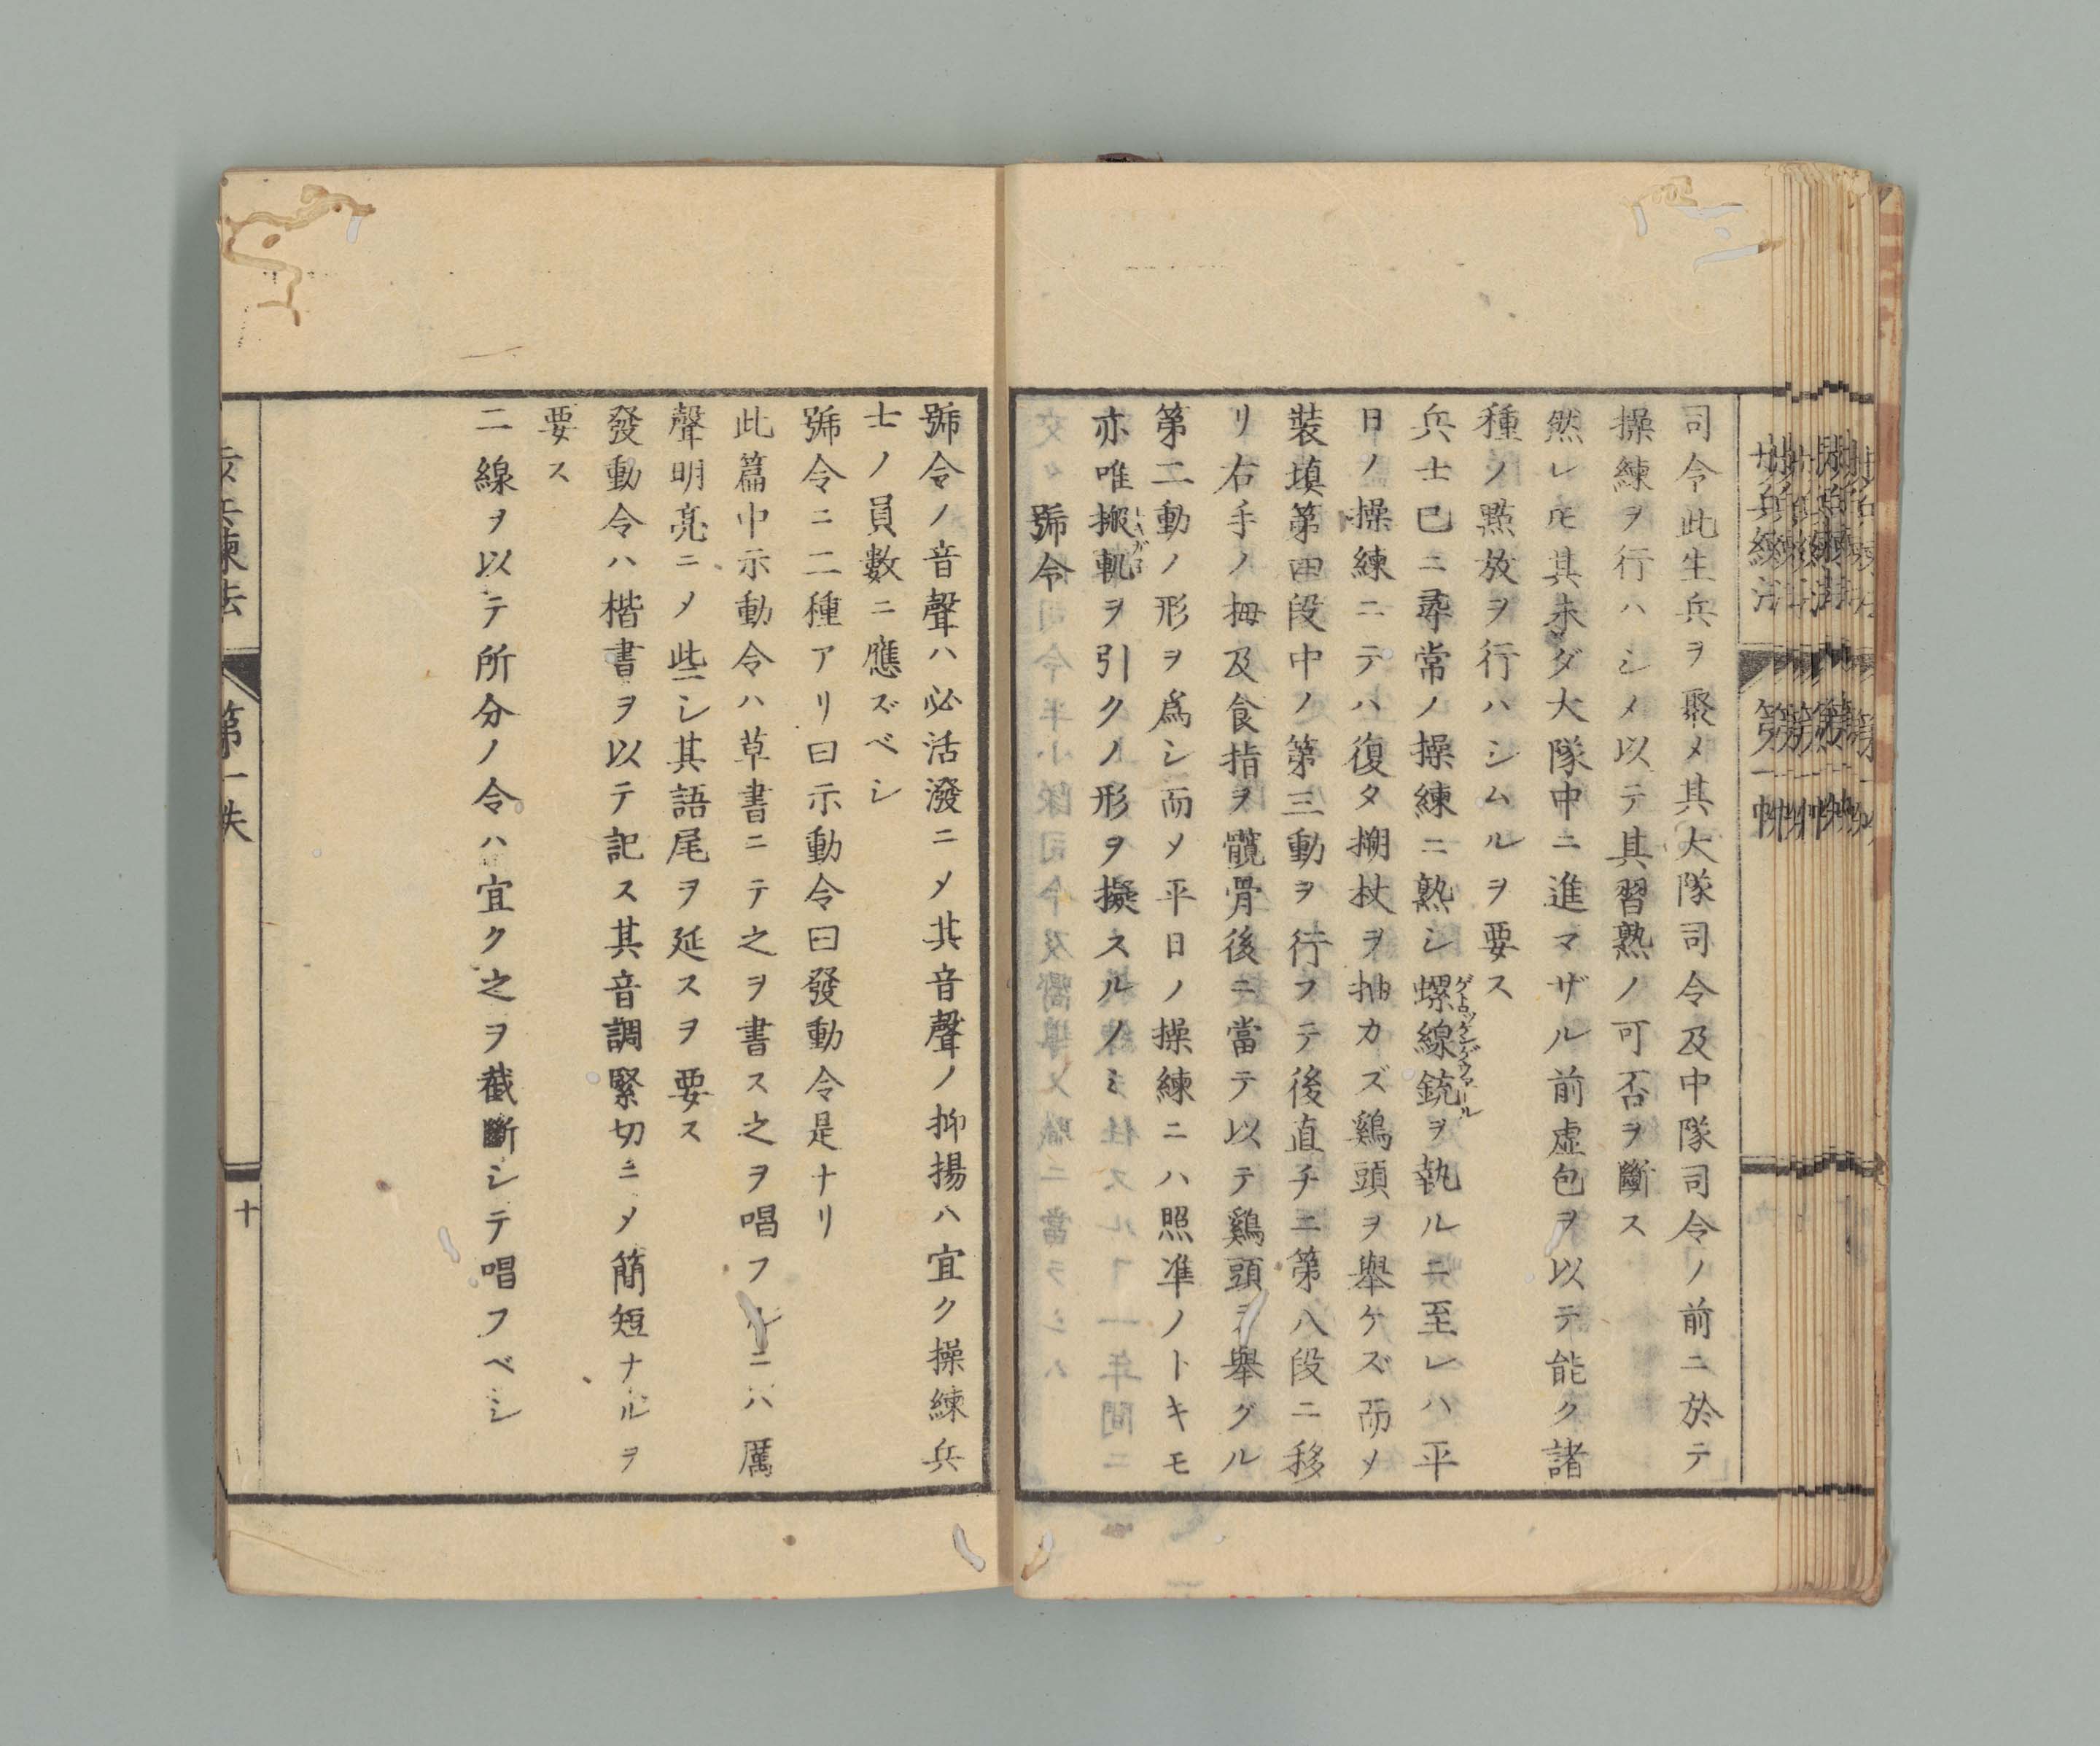 司令此生兵ヲ聚メ其大隊司令及中隊司令ノ前ニ於テ
操練ヲ行ハシメ以テ其習熟ノ可否ヲ斷ス
然レ𪜈其未ダ大隊中ニ進マザル前虚包ヲ以テ能ク諸
種ノ點放ヲ行ハシムルヲ要ス
兵士已ニ尋常ノ操練ニ熟シ螺線銃ヲ執ルニ至レハ平
日ノ操練ニテハ復タ搠杖ヲ抽カズ鷄頭ヲ舉ケズ而メ
裝塡第四段中ノ第三動ヲ行フテ後直チニ第八段ニ移
リ右手ノ拇及食指ヲ髖骨後ニ當テ以テ鷄頭ヲ舉グル
第二動ノ形ヲ爲シ而メ平日ノ操練ニハ照準ノトキモ
亦唯搬軌ヲ引クノ形ヲ擬スルノミ
號令
號令ノ音聲ハ必活潑ニメ其音聲ノ抑揚ハ宜ク操練兵
士ノ員數ニ應ズベシ
號令ニ二種アリ曰示動令曰發動令是ナリ
此篇中示動令ハ草書ニテ之ヲ書ス之ヲ唱フルニハ厲
聲明亮ニメ些シ其語尾ヲ延スヲ要ス
發動令ハ楷書ヲ以テ記ス其音調緊切ニメ簡短ナルヲ
要ス
二線ヲ以テ所分ノ令ハ宜ク之ヲ截斷シテ唱フベシ
第一帙
十